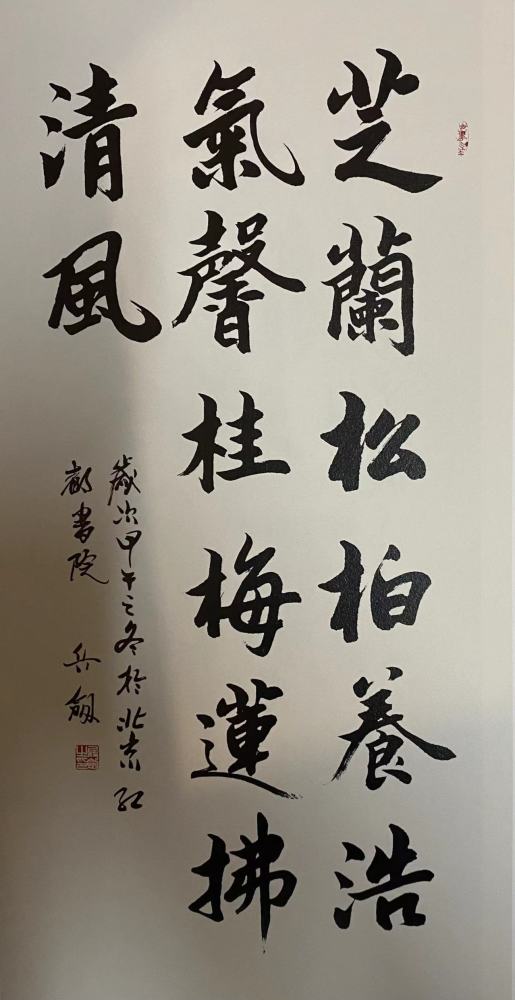 芝蘭松柏養浩
氣馨桂梅蓮拂
清風
歲次甲午之冬於北京紅
都書院 岳劔